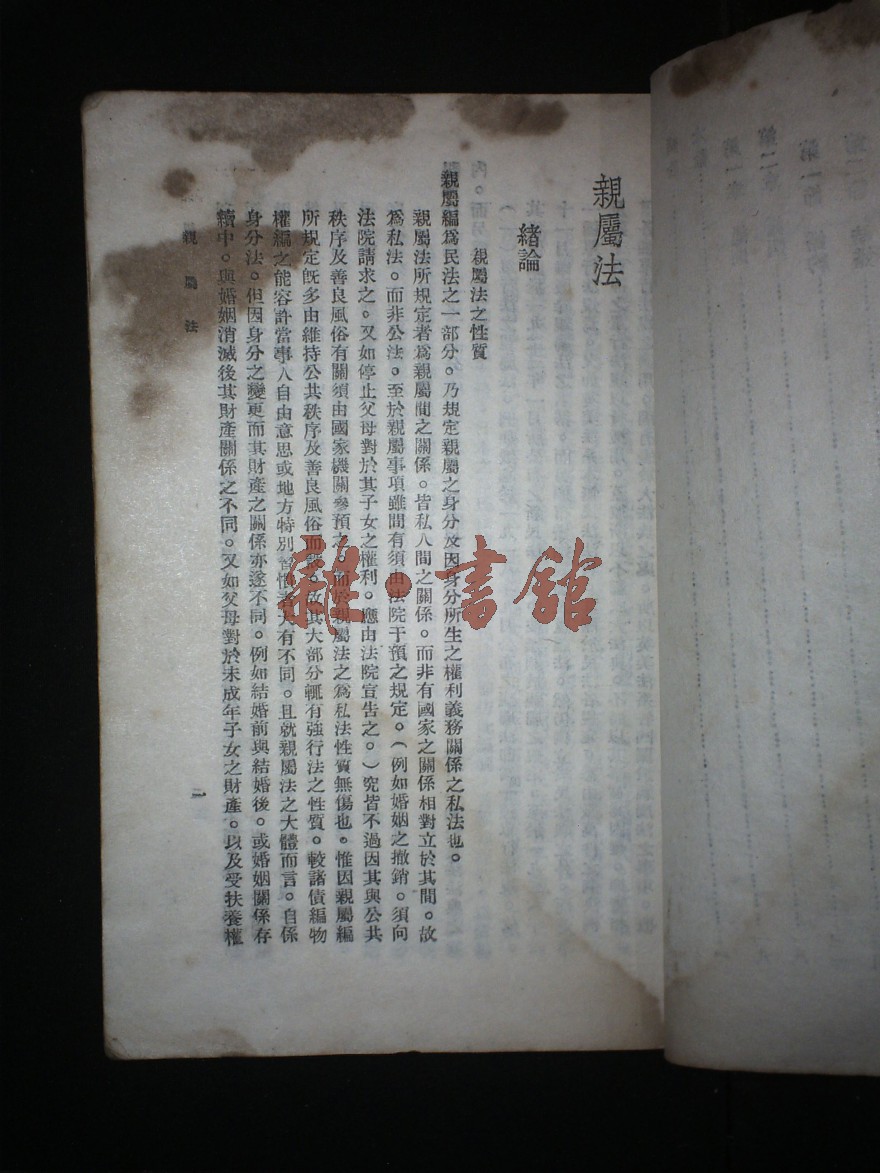 親屬法
緒論
親屬法之性質
親屬編爲民法之一部分。乃規定親屬之身分及因身分所生之權利義務關係之私法也。
親屬法所規定者爲親屬間之關係。皆私人間之關係。而非有國家之關係相對立於其間。故
爲私法。而非公法。至於親屬事項雖間有須由法院干預之規定。(例如婚姻之撤銷。須向
法院請求之。又如停止父母對於其子女之權利。應由法院宣告之。)究皆不過因其與公共
秩序及善良風俗有關須由國家機關參預之。而於親屬法之爲私法性質無傷也。惟因親屬編
所規定旣多由維持公共秩序及善良風俗而設。故其大部分輒有強行法之性質。較諸債編物
權編之能容許當事人自由意思或地方特別習慣者大有不同。且就親屬法之大體而言。自係
身分法。但因身分之變更而其財產之關係亦遂不同。例如結婚前與結婚後。或婚姻關係存
續中。與婚姻消滅後其財產關係之不同。又如父母對於未成年子女之財產。以及受扶養權
親屬法
一
雜·書館